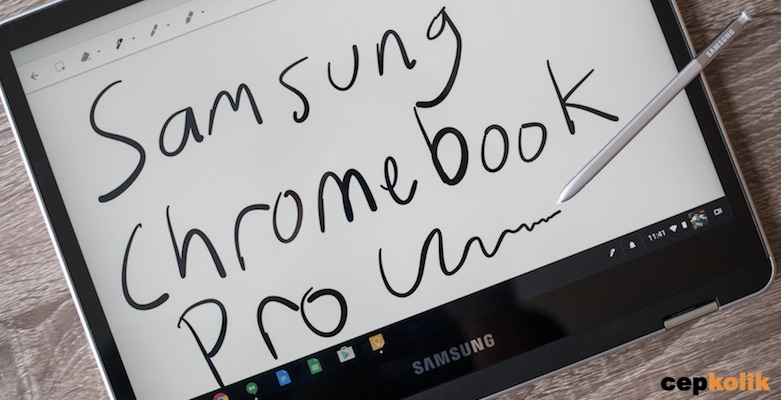 Samsung
Chromebook
Pro
SAMSUNG
11:41
SAMSUNG
cepkolik